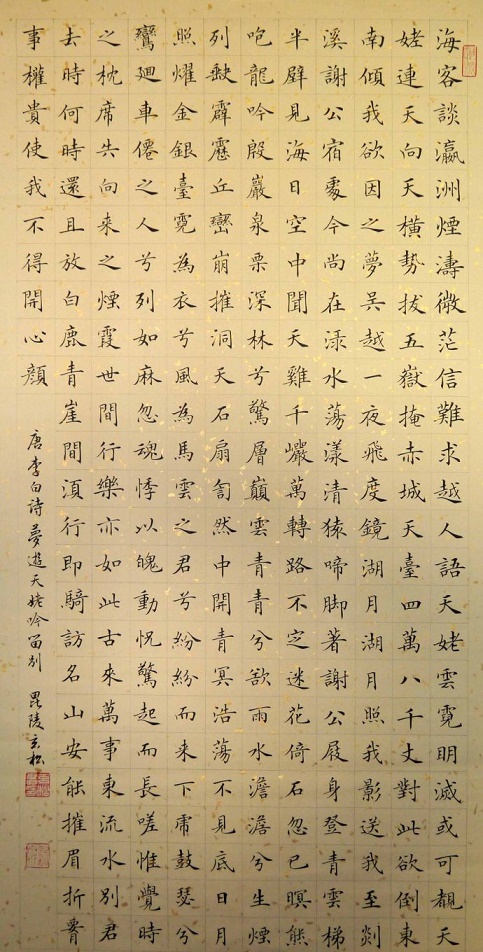 海客談瀛洲煙濤微茫信難求越人語天姥雲霓明滅或可覩天
姥連天向天橫勢拔五嶽掩赤城天臺四萬八千丈對此欲倒東
南傾我欲因之夢吳越一夜飛度鏡湖月湖月照我影送我至剡
溪謝公宿處今尚在淥水蕩漾清猿啼脚著謝公屐身登青雲梯
半壁見海日空中聞天雞千巖萬轉路不定迷花倚石忽已暝熊
咆龍吟殷巖泉栗深林兮驚層巔雲青青兮欲雨水澹澹兮生煙
列缺霹靂丘巒崩摧洞天石扇訇然中開青冥浩蕩不見底日月
照燿金銀臺霓為衣兮風為馬雲之君兮紛紛而來下虎鼓瑟兮
鸞迴車僊之人兮列如麻忽魂悸以魄動怳驚起而長嗟惟覺時
之枕席失向來之煙霞世間行樂亦如此古來萬事東流水別君
去時何時還且放白鹿青崖間須行即騎訪名山安能摧眉折腰
事權貴使我不得開心顔
唐李白詩夢遊天姥吟留別 毘陵玄松